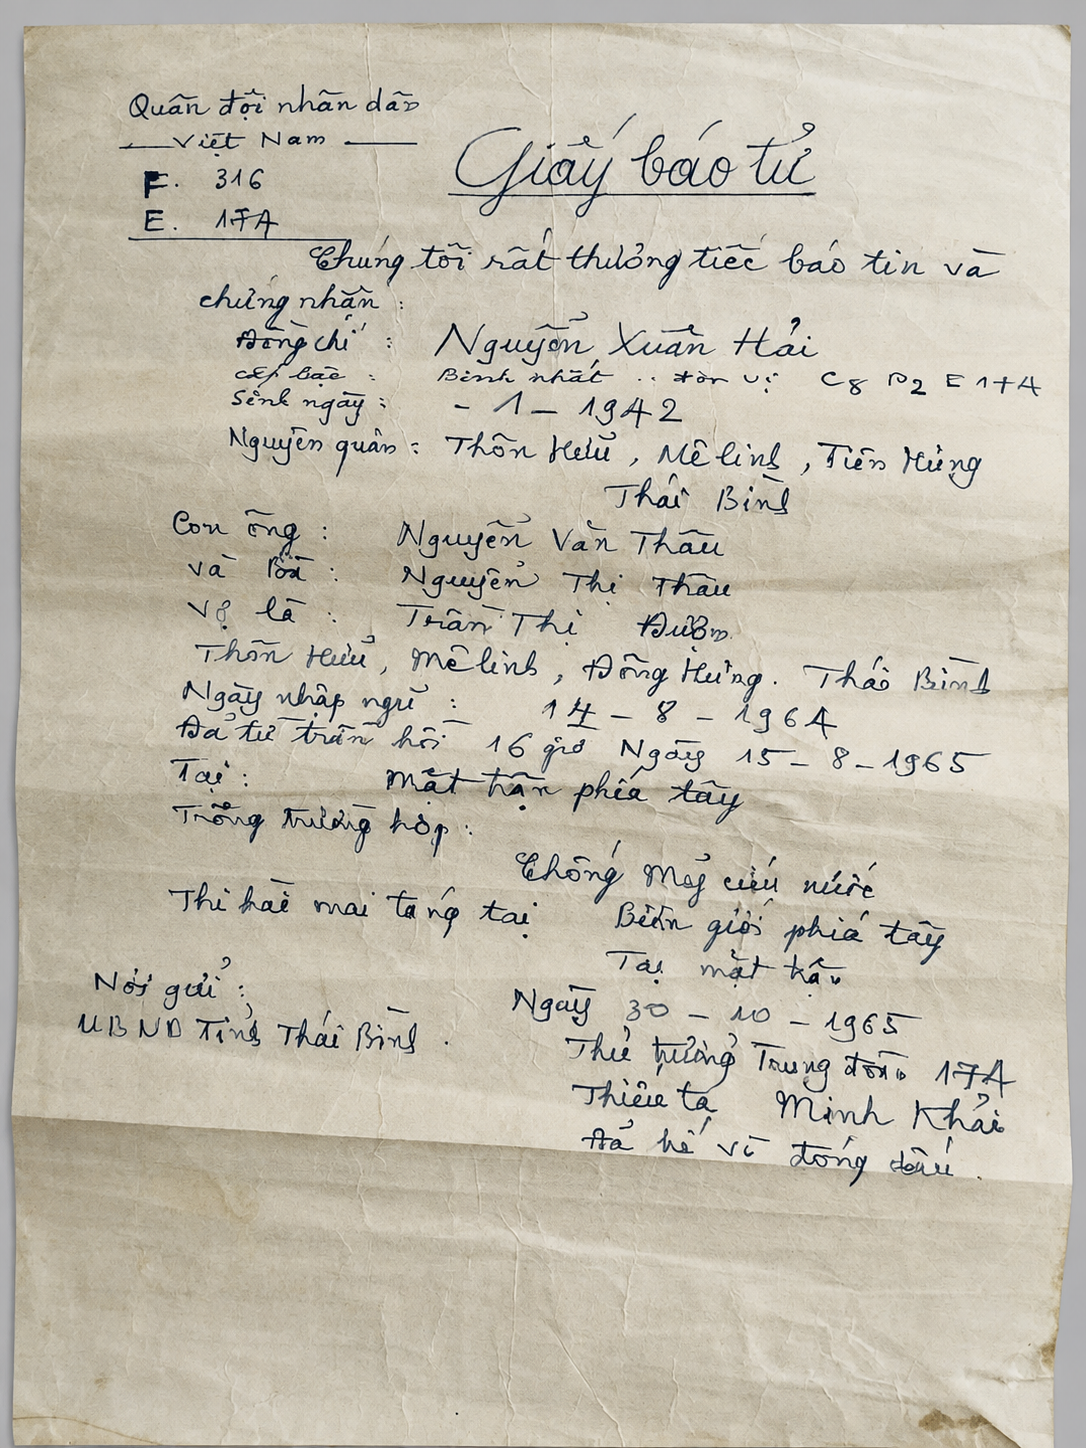 Quân đội nhân dân
Việt Nam
F. 316
E. 17A
Giấy báo tử
Chúng tôi rất thương tiếc báo tin và
chứng nhận :
Đồng chí : Nguyễn Xuân Hải
cấp bậc : Binh nhất .. đơn vị C8 D2 E 17A
Sinh ngày : - 1 - 1942
Nguyên quán : Thôn Hữu, Mê linh, Tiên Hưng
Thái Bình
Con ông : Nguyễn Văn Thâu
và Bà : Nguyễn Thị Thâu
Vợ là : Trần Thị Đượm
Thôn Hữu, Mê linh, Đông Hưng. Thái Bình
Ngày nhập ngũ : 14 - 8 - 1964
Đã từ trần hồi 16 giờ Ngày 15 - 8 - 1965
Tại : Mặt trận phía tây
Trong trường hợp :
Chống Mỹ cứu nước
Thi hài mai táng tại Biên giới phía tây
Tại mặt trận
Nơi gửi : Ngày 30 - 10 - 1965
UBND Tỉnh Thái Bình .
Thủ trưởng Trung đoàn 17A
Thiếu tá Minh Khải
Đã ký và đóng dấu .